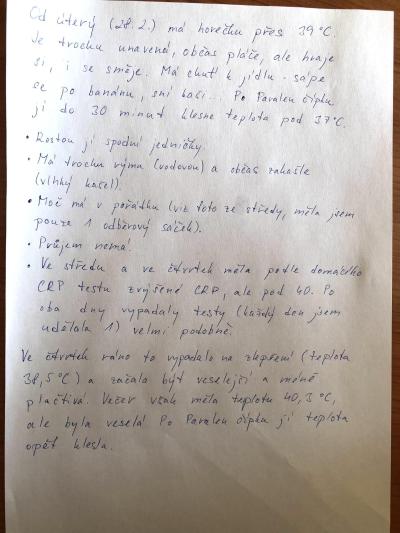 Od úterý (28.2.) má horečku přes 39°C.
Je trochu unavená, občas pláče, ale hraje
si, i se směje. Má chuť k jídlu - sápe
se po banánu, sní kaši... Po Paralen čípku
jí do 30 minut klesne teplota pod 37°C.
• Rostou jí spodní jedničky.
• Má trochu rýmu (vodovou) a občas zakašle
(vlhký kašel).
• Moč má v pořádku (viz foto ze středy, měla jsem
pouze 1 odběrový sáček).
• Průjem nemá.
• Ve středu a ve čtvrtek měla podle domácího
CRP testu zvýšené CRP, ale pod 40. Po
oba dny vypadaly testy (každý den jsem
udělala 1) velmi podobně.
Ve čtvrtek ráno to vypadalo na zlepšení (teplota
38,5°C) a začala být veselejší a méně
plačtivá. Večer však měla teplotu 40,3°C,
ale byla veselá. Po Paralen čípku jí teplota
opět klesla.